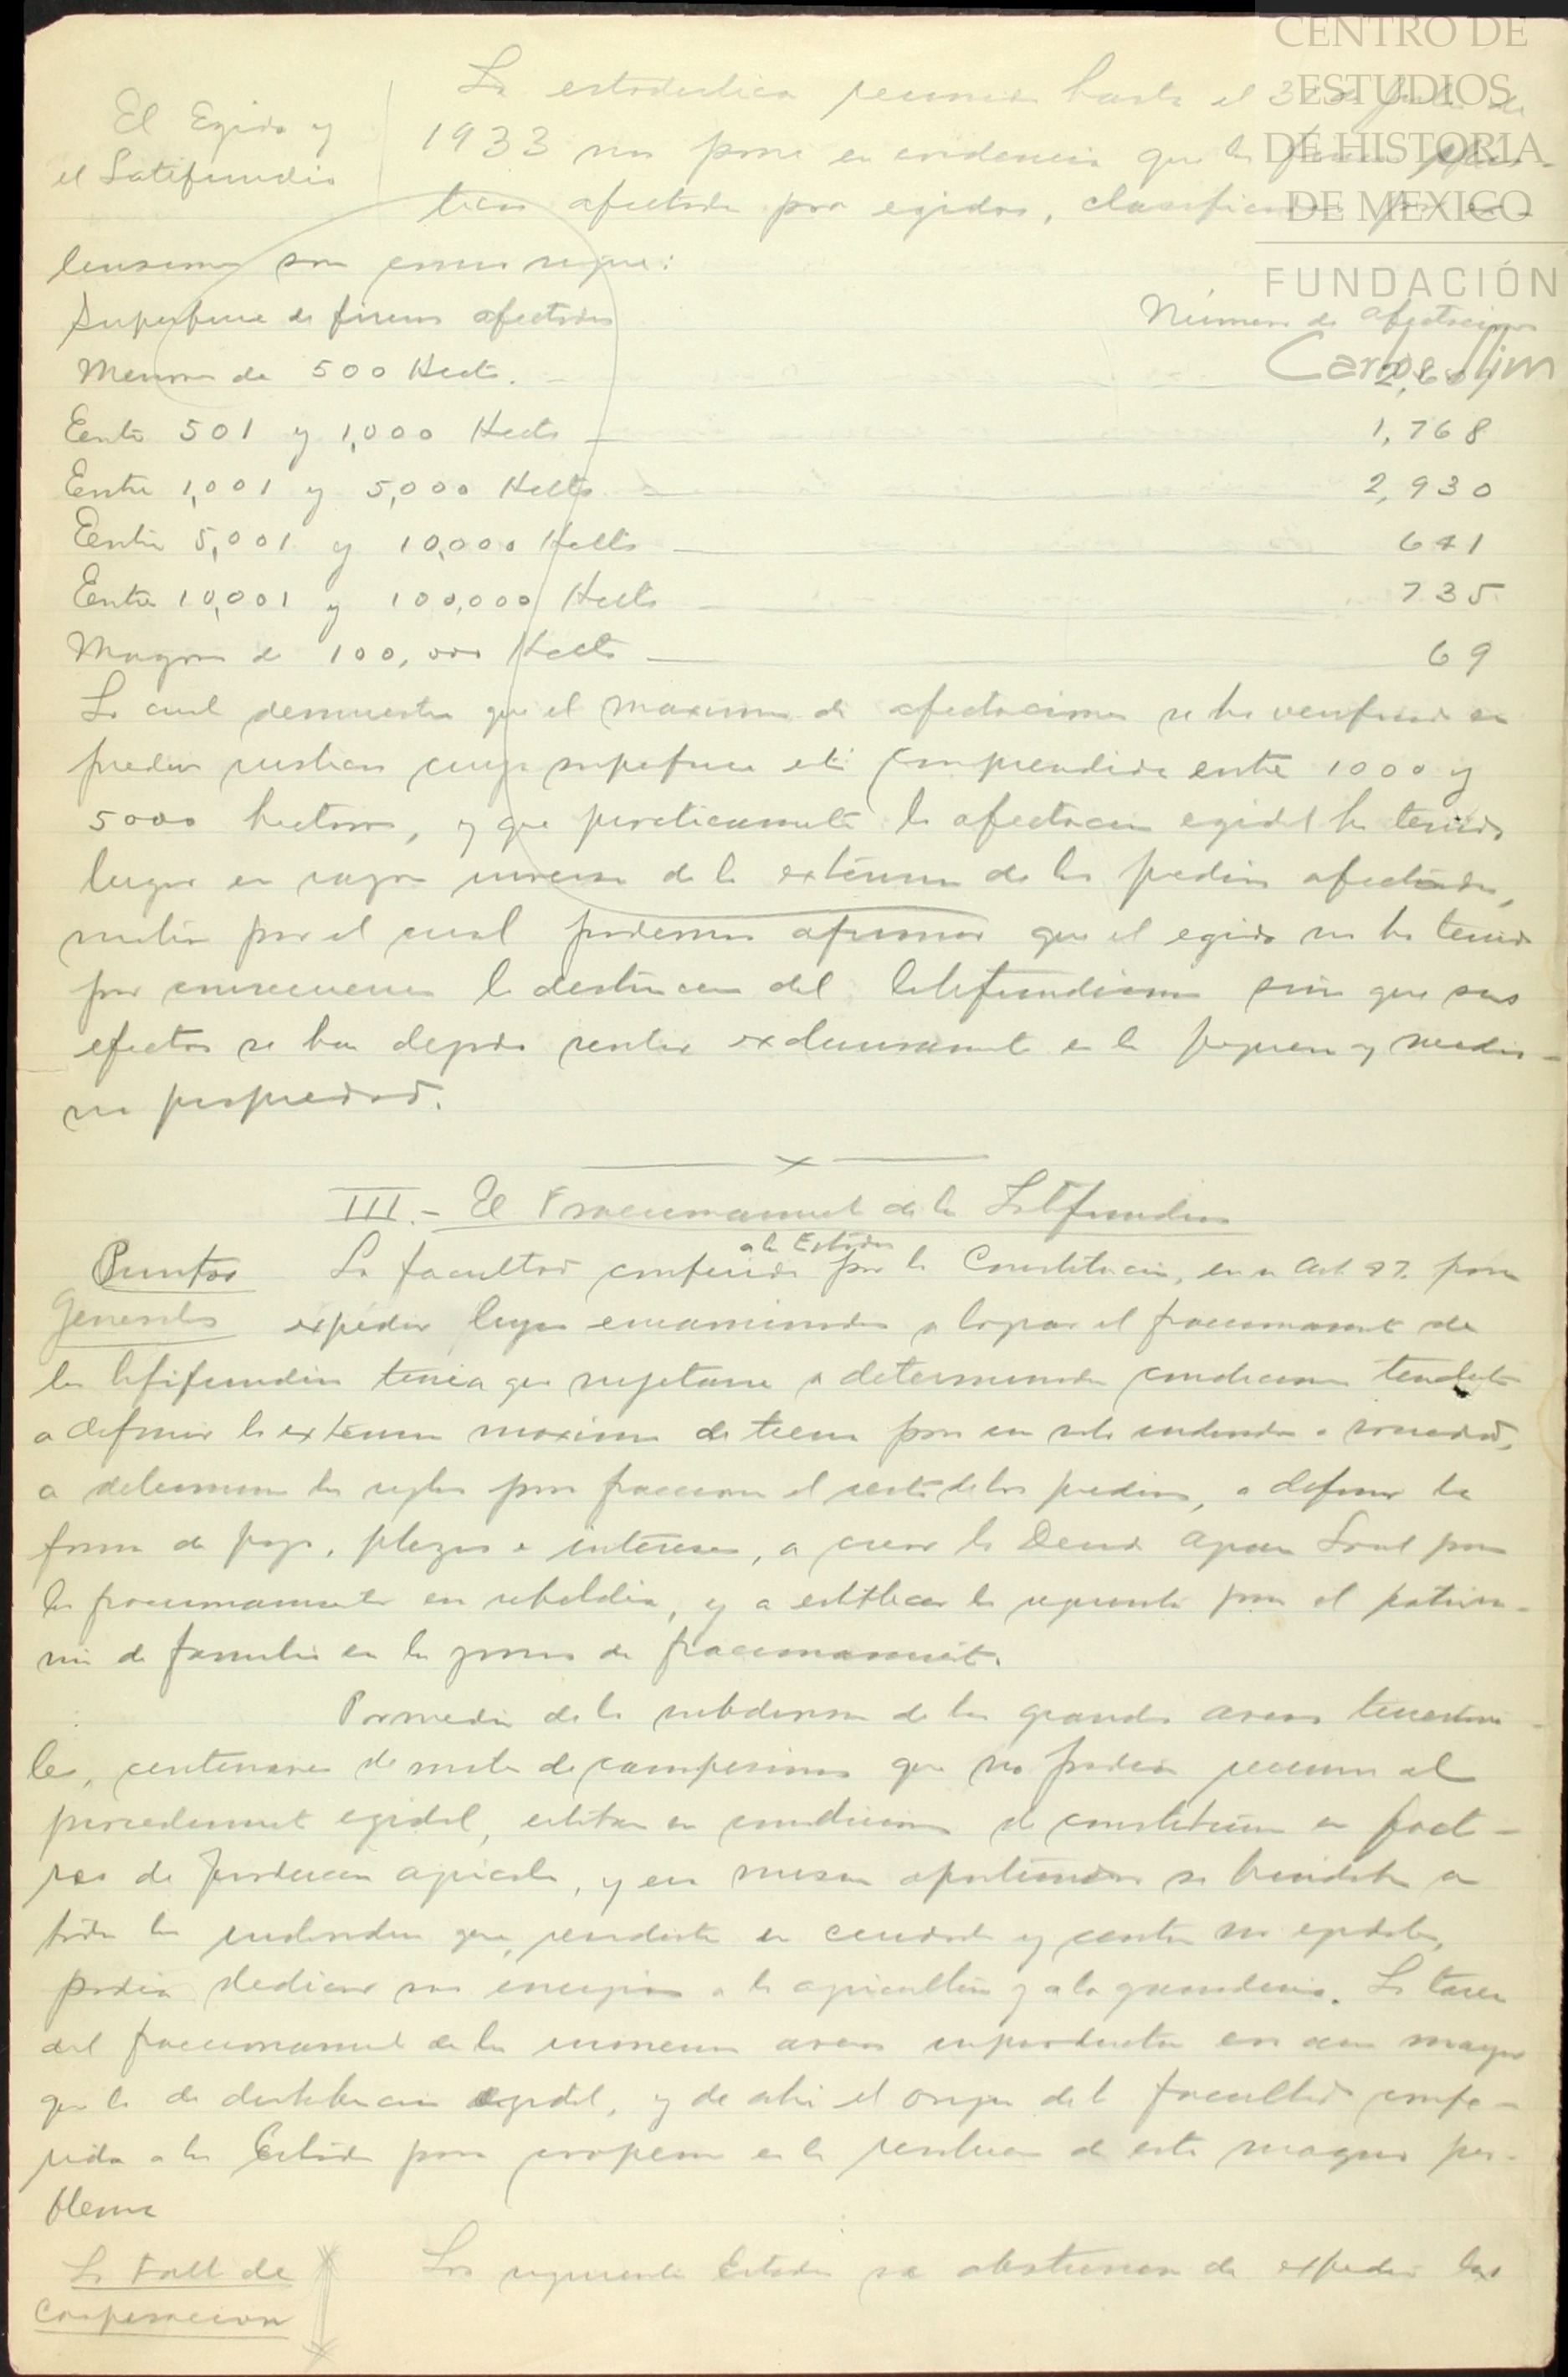 CENTRO DE
ESTUDIOS
DE HISTORIA
DE MEXICO
FUNDACIÓN
Carlos Slim
El Egido y
el Latifundio
La estadistica reunida hasta el 31 de Julio de
1933 nos pone en evidencia que las fincas rus-
ticas afectadas por egidos, clasificadas por ex-
tensiones son como sigue:
Superficie de fincas afectadas
Número de afectaciones
Menores de 500 Hects.
Entre 501 y 1,000 Hects
1,768
Entre 1,001 y 5,000 Hects
2,930
Entre 5,001 y 10,000 Hects
641
Entre 10,001 y 100,000 Hects
735
Mayores de 100,000 Hects
69
Lo cual demuestra que el maximo de afectaciones se ha verificado en
predios rusticos cuya superficie está comprendida entre 1000 y
5000 hectaras, y que practicamente la afectacion egidal ha tenido
lugar en razon inversa de la extension de los predios afectados,
motivo por el cual podemos afirmar que el egido no ha tenido
por consecuencia la destruccion del latifundismo sino que sus
efectos se han dejado sentir exclusivamente en la pequeña y media-
na propiedad.
III.- El Fraccionamiento de los Latifundios
Puntos
Generales
a los Estados
La facultad conferida por la Constitucion, en su Art. 27. para
expedir leyes encaminadas a lograr el fraccionamiento de
los latifundios tenia que sujetarse a determinadas condiciones tendentes
a definir la extension maxima de tierra para un solo individuo o sociedad,
a determinar las reglas para fraccionar el resto de los predios, a definir la
forma de pago, plazos e intereses, a crear la Deuda Agraria Local para
los fraccionamientos en rebeldia, y a establecer lo referente para el patrimo-
nio de familia en las zonas de fraccionamiento.
Por medio de la subdivision de las grandes areas territoria-
les, centenares de miles de campesinos que no podian recurrir al
procedimiento egidal, estaban en condiciones de constituirse en facto-
res de produccion agricola, y esa misma oportunidad se brindaba a
todos los individuos que, residentes en ciudades y centros no egidales,
podian dedicar sus energias a la agricultura y a la ganaderia. La tarea
del fraccionamiento de las inmensas areas improductivas era aun mayor
que la de distribucion egidal, y de ahi el origen de la facultad confe-
rida a los Estados para cooperar en la resolucion de este magno pro-
blema
La Falta de
Cooperacion
Los siguientes Estados se abstuvieron de expedir las